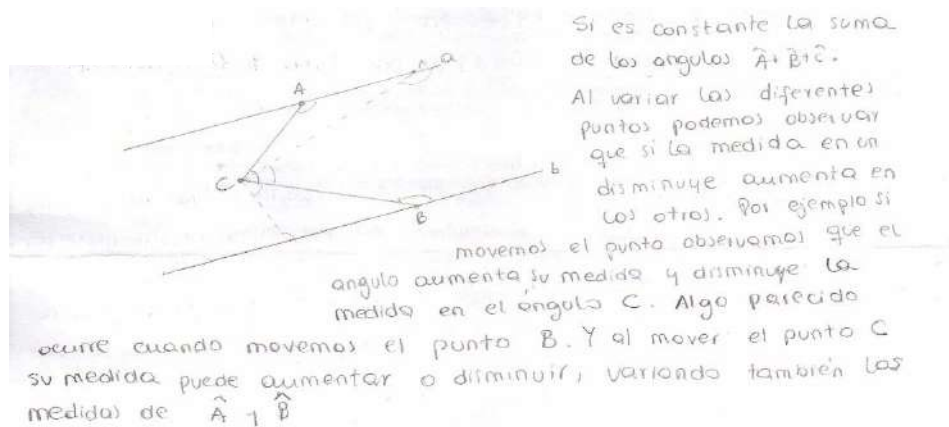 Si es constante la suma
de los angulos Â+B̂+Ĉ.
Al variar las diferentes
puntos podemos observar
que si la medida en un
disminuye aumenta en
los otros. Por ejemplo si
movemos el punto observamos que el
angulo aumenta su medida y disminuye la
medida en el ángulo C. Algo parecido
ocurre cuando movemos el punto B. Y al mover el punto C
su medida puede aumentar o disminuir, variando también las
medidas de Â y B̂
a
A
C
b
B